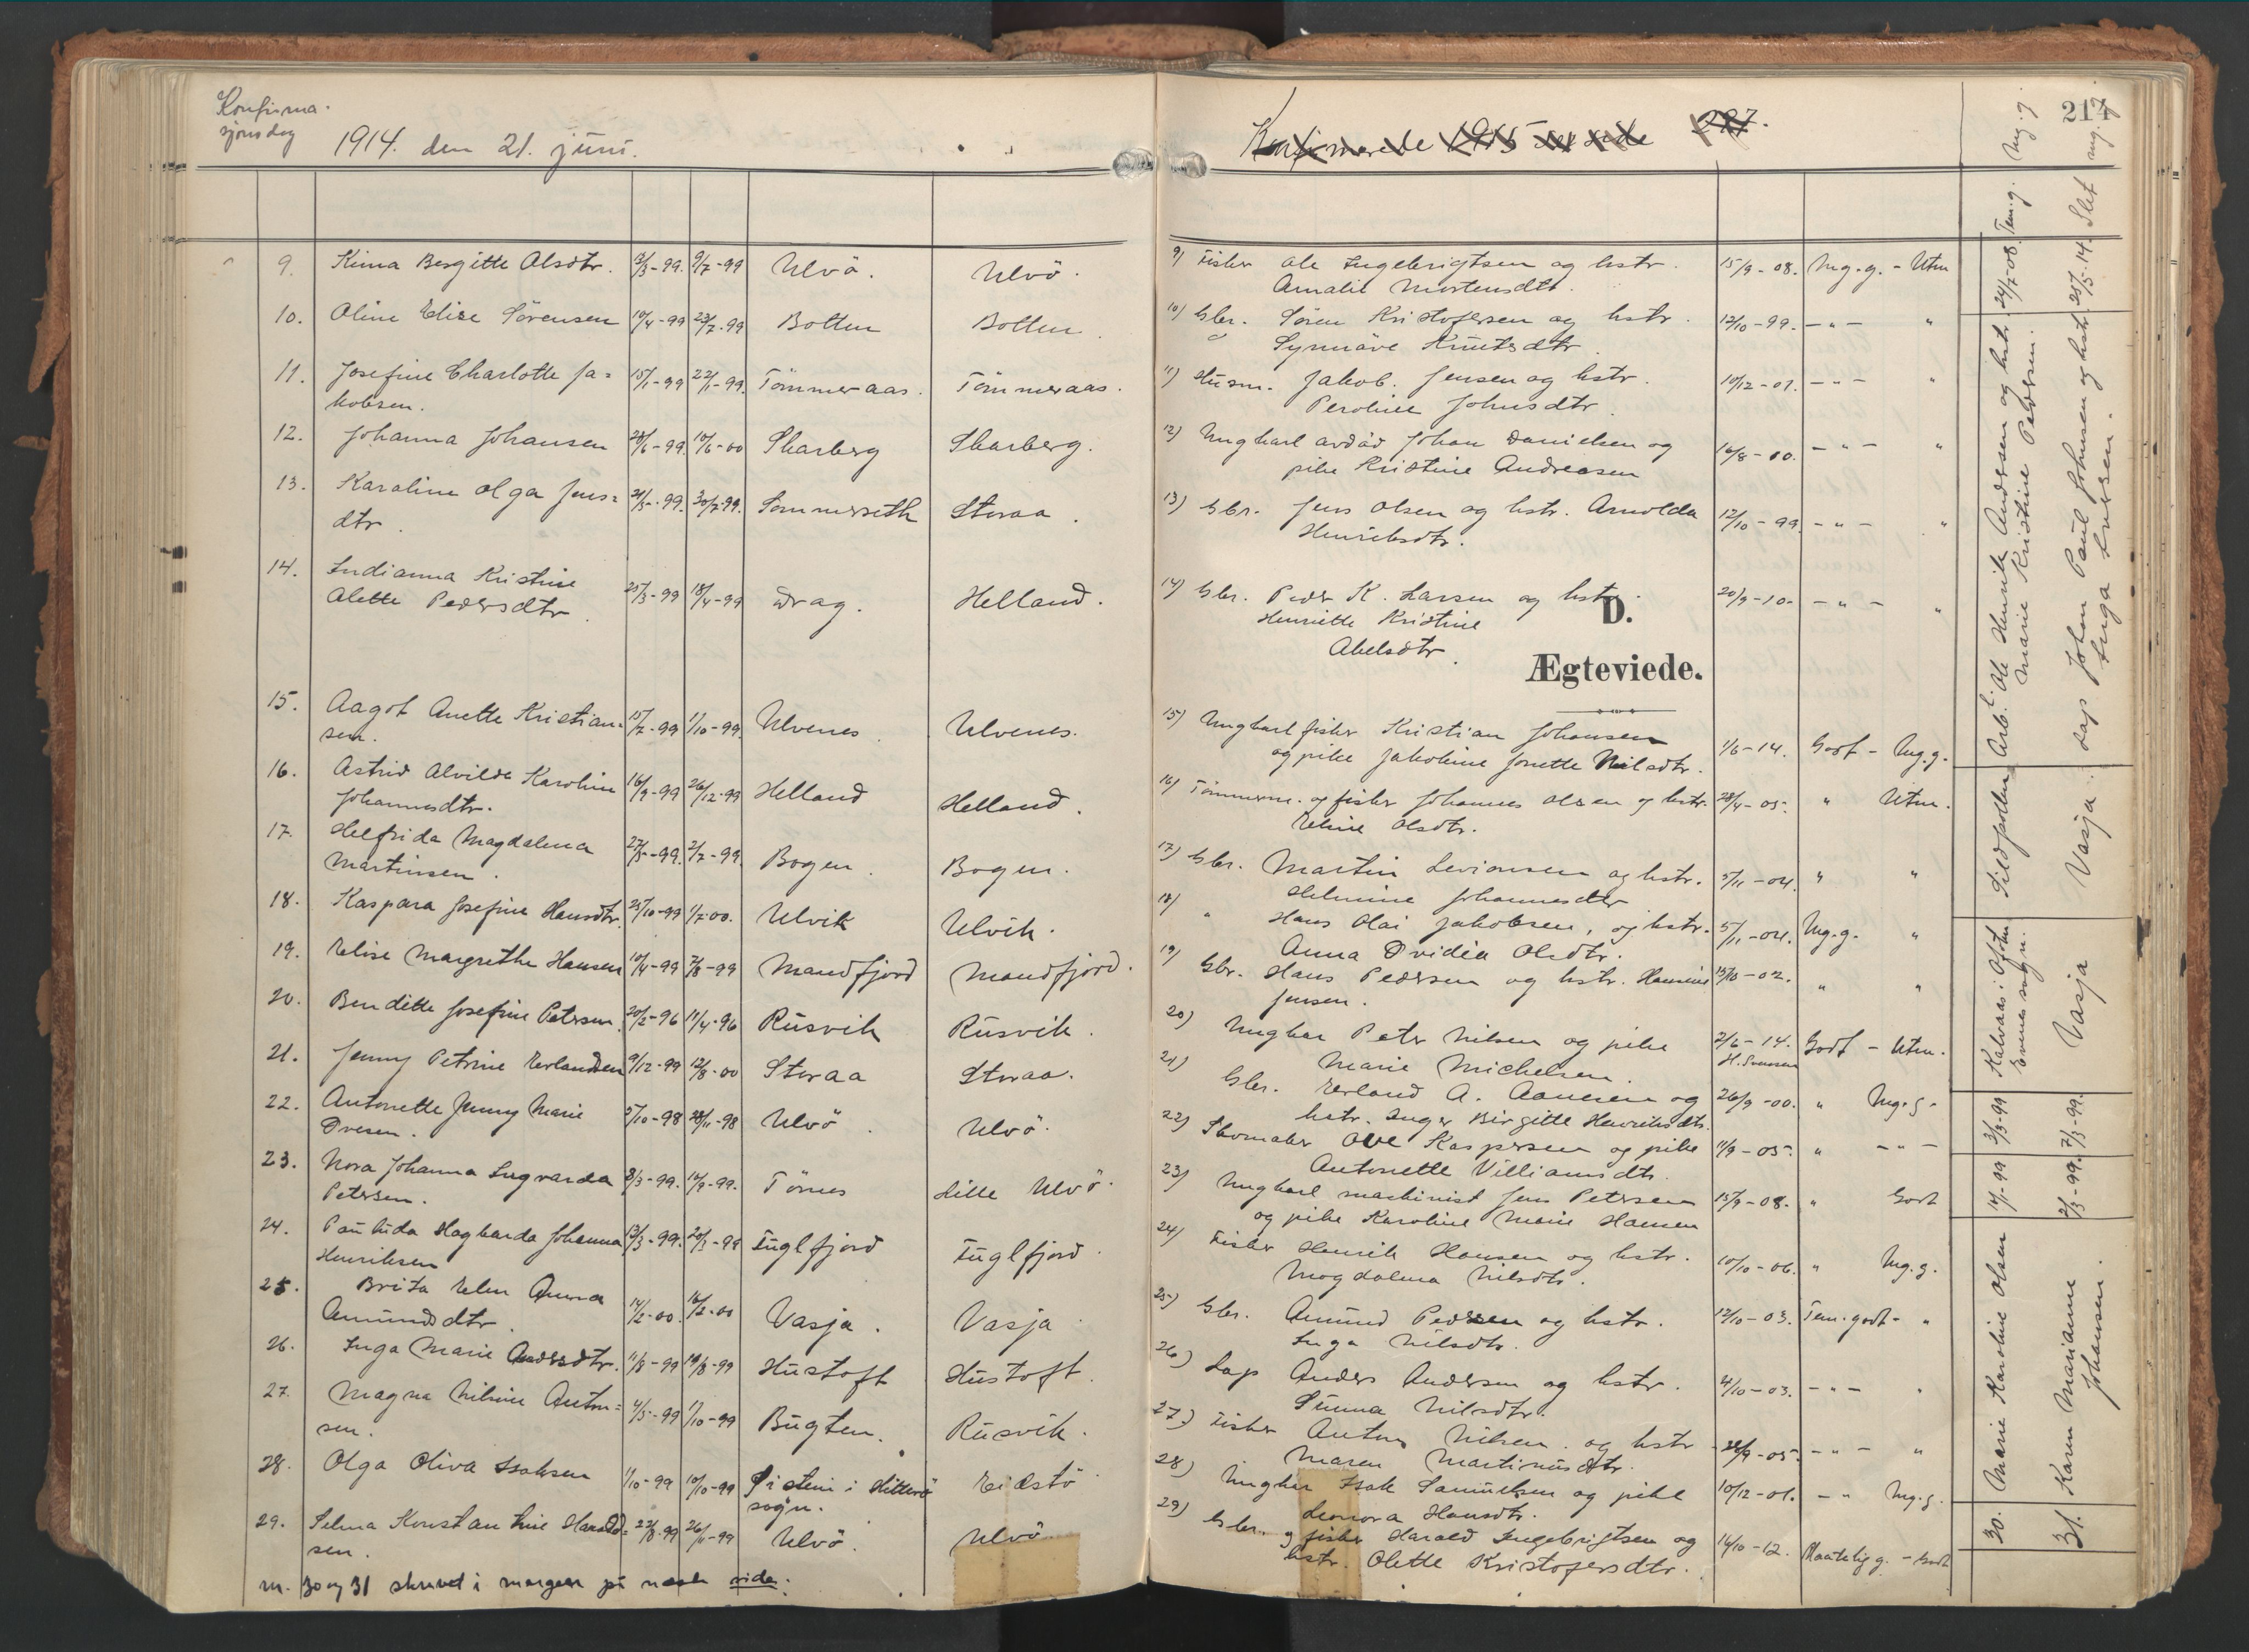 Konfirma-
sjonsdag
1914. den 21. juni.
9. Kima Bergitte Olsdtr. 3/3-99. 9/7-99 Ulvö. Ulvö.
10. Oline Elise Sörensen 10/4-99 23/7-99 Botten Botten.
11. Josefine Charlotte Ja= 15/1-99 22/1-99. Tömmeraas. Tömmeraas.
kobsen.
12. Johanna Johansen 28/6-99. 10/6-00 Skarberg Skarberg.
13. Karoline Olga Jens= 21/5-99. 30/7-99. Sommerseth Storaa.
dtr.
14. Indianna Kristine
Alette Pedersdtr. 25/3-99 18/4-99 Drag. Helland.
15. Aagot Anette Kristian= 15/7-99 1/10-99. Ulvenes. Ulvenes.
sen.
16. Astrid Alvilde Karoline 16/9-99 26/12-99 Helland Helland.
Johannesdtr.
17. Helfrida Magdalena 27/5-99. 2/7-99. Bogen. Bogen.
Martinsen.
18. Kaspara Josefine Hansdtr. 25/10-99 1/7-00. Ulvik Ulvik.
19. Elise Margrethe Hansen 10/4-99 7/8-99 Mandfjord Mandfjord.
20. Benditte Josefine Petersen. 20/2-96 11/4-96 Rusvik Rusvik.
21. Jenny Petrine Erlandsen 9/12-99 12/8-00 Storaa Storaa.
22. Antonette Jenny Marie 5/10-98 28/11-98 Ulvö. Ulvö.
Ovesen.
23. Nora Johanna Ingvarda 8/3-99. 16/9-99. Tömes Lille Ulvö.
Petersen.
24. Paulida Hagbarda Johanna 13/3-99. 20/3-99 Fuglfjord Fuglfjord.
Henriksen
25. Brita Elen Anna
Amundsdtr. 14/2-00. 16/2-00 Vasja. Vasja.
26. Inga Marie Andersdtr. 11/8-99 19/8-99 Hustoft Hustoft.
27. Magna Nilsine Anton= 4/5-99 1/10-99 Bugten. Rusvik.
sen.
28. Olga Oliva Isaksen 1/10-99 10/10-99 i Hitterö Eidstö
sogn.
29. Selma Konstantine Harald= 22/8-99 26/11-99 Ulvö. Ulvö.
sen.
nr. 30 og 31 skrevet i margen på neste side.
Konfirmerede 1915 se side 227.
217
9) Fisker Ole Ingebrigtsen og hstr. 15/9-08. Mg.g. - Utm
Amalie Mortensdtr.
10) Gbr. Sören Kristofersen og hstr. 12/10-99. -"- "
Synnöve Knutsdtr.
11) Husm. Jakob Jensen og hstr. 10/12-01. -"- "
Peroline Johnsdtr.
12) Ungkarl avdöd Johan Danielsen og 16/8-00. -"- "
pike Kristine Andreasen
13) Gbr. Jens Olsen og hstr. Arnolda 12/10-99. -"- "
Henriksdtr.
14) Gbr. Peder K. Larsen og hstr. 20/9-10- -"- "
Henriette Kristine
Abelsdtr.
D.
Ægteviede.
15) Ungkarl fisker Kristian Johansen 1/6-14. Godt - Mg.g.
og pike Jakobine Jonette Nilsdtr.
16) Tömmerm. og fisker Johannes Olsen og hstr. 28/4-05. " Utm.
Eline Olsdtr.
17) Gbr. Martin Levionsen og hstr. 5/11-04. " "
Helmine Johannesdtr
18) " Hans Olai Jakobsen, og hstr. 5/11-04. Mg.g. "
Anna Ovidia Olsdtr.
19) Gbr. Hans Pedersen og hstr. Hansine 15/10-02. " "
Jensen.
20) Ungkar Peter Nilsen og pike 2/6-14. Godt - Utm.
Marie Michelsen. H. Svensen
21) Gbr. Erland A. Aanesen og 26/9-00. " Mg.g.
hstr. Inger Birgitte Henriksdtr.
22) Skomaker Ove Kaspersen og pike 11/9-05. " -"-
Antonette Villiamsdtr.
23) Ungkarl maskinist Jens Petersen 15/9-08. " Godt
og pike Karoline Marie Hansen
24) Fisker Henrik Hansen og hstr. 10/10-06. " Mg.g.
Magdalena Nilsdtr.
25) Gbr. Amund Pedersen og hstr. 12/10-03. Tem.godt - "
Inga Nilsdtr.
26) Lap Anders Andersen og hstr. 4/10-03. -"- "
Sunna Nilsdtr.
27.) Fisker Anton Nilsen og hstr 28/9-05. -"- "
Maren Martinusdtr.
28) Ungkar Isak Samuelsen og pike 10/12-01. -"- Mg.g.
Leonora Hansdtr.
29) Gbr. og fisker Harald Ingebrigtsen og 14/10-12. Maatelig g. - Godt
hstr. Olette Kristofersdtr.
30. Marie Karoline Olsen 14/1-99 3/3-99 Kalvaas i Ofoten Evenes sogn. Sildpollen Arb. Ole Henrik Andersen og hstr. 24/7-08. Tem.g. Mg.g
Marie Kristine Pedersen.
31. Karen Marianne 2/3-99. 7/3-99. Vasja Vasja. Lap Johan Paul Johnsen og hstr. 25/5-14. Slet mg.g
Johansen. Inga Larsen.